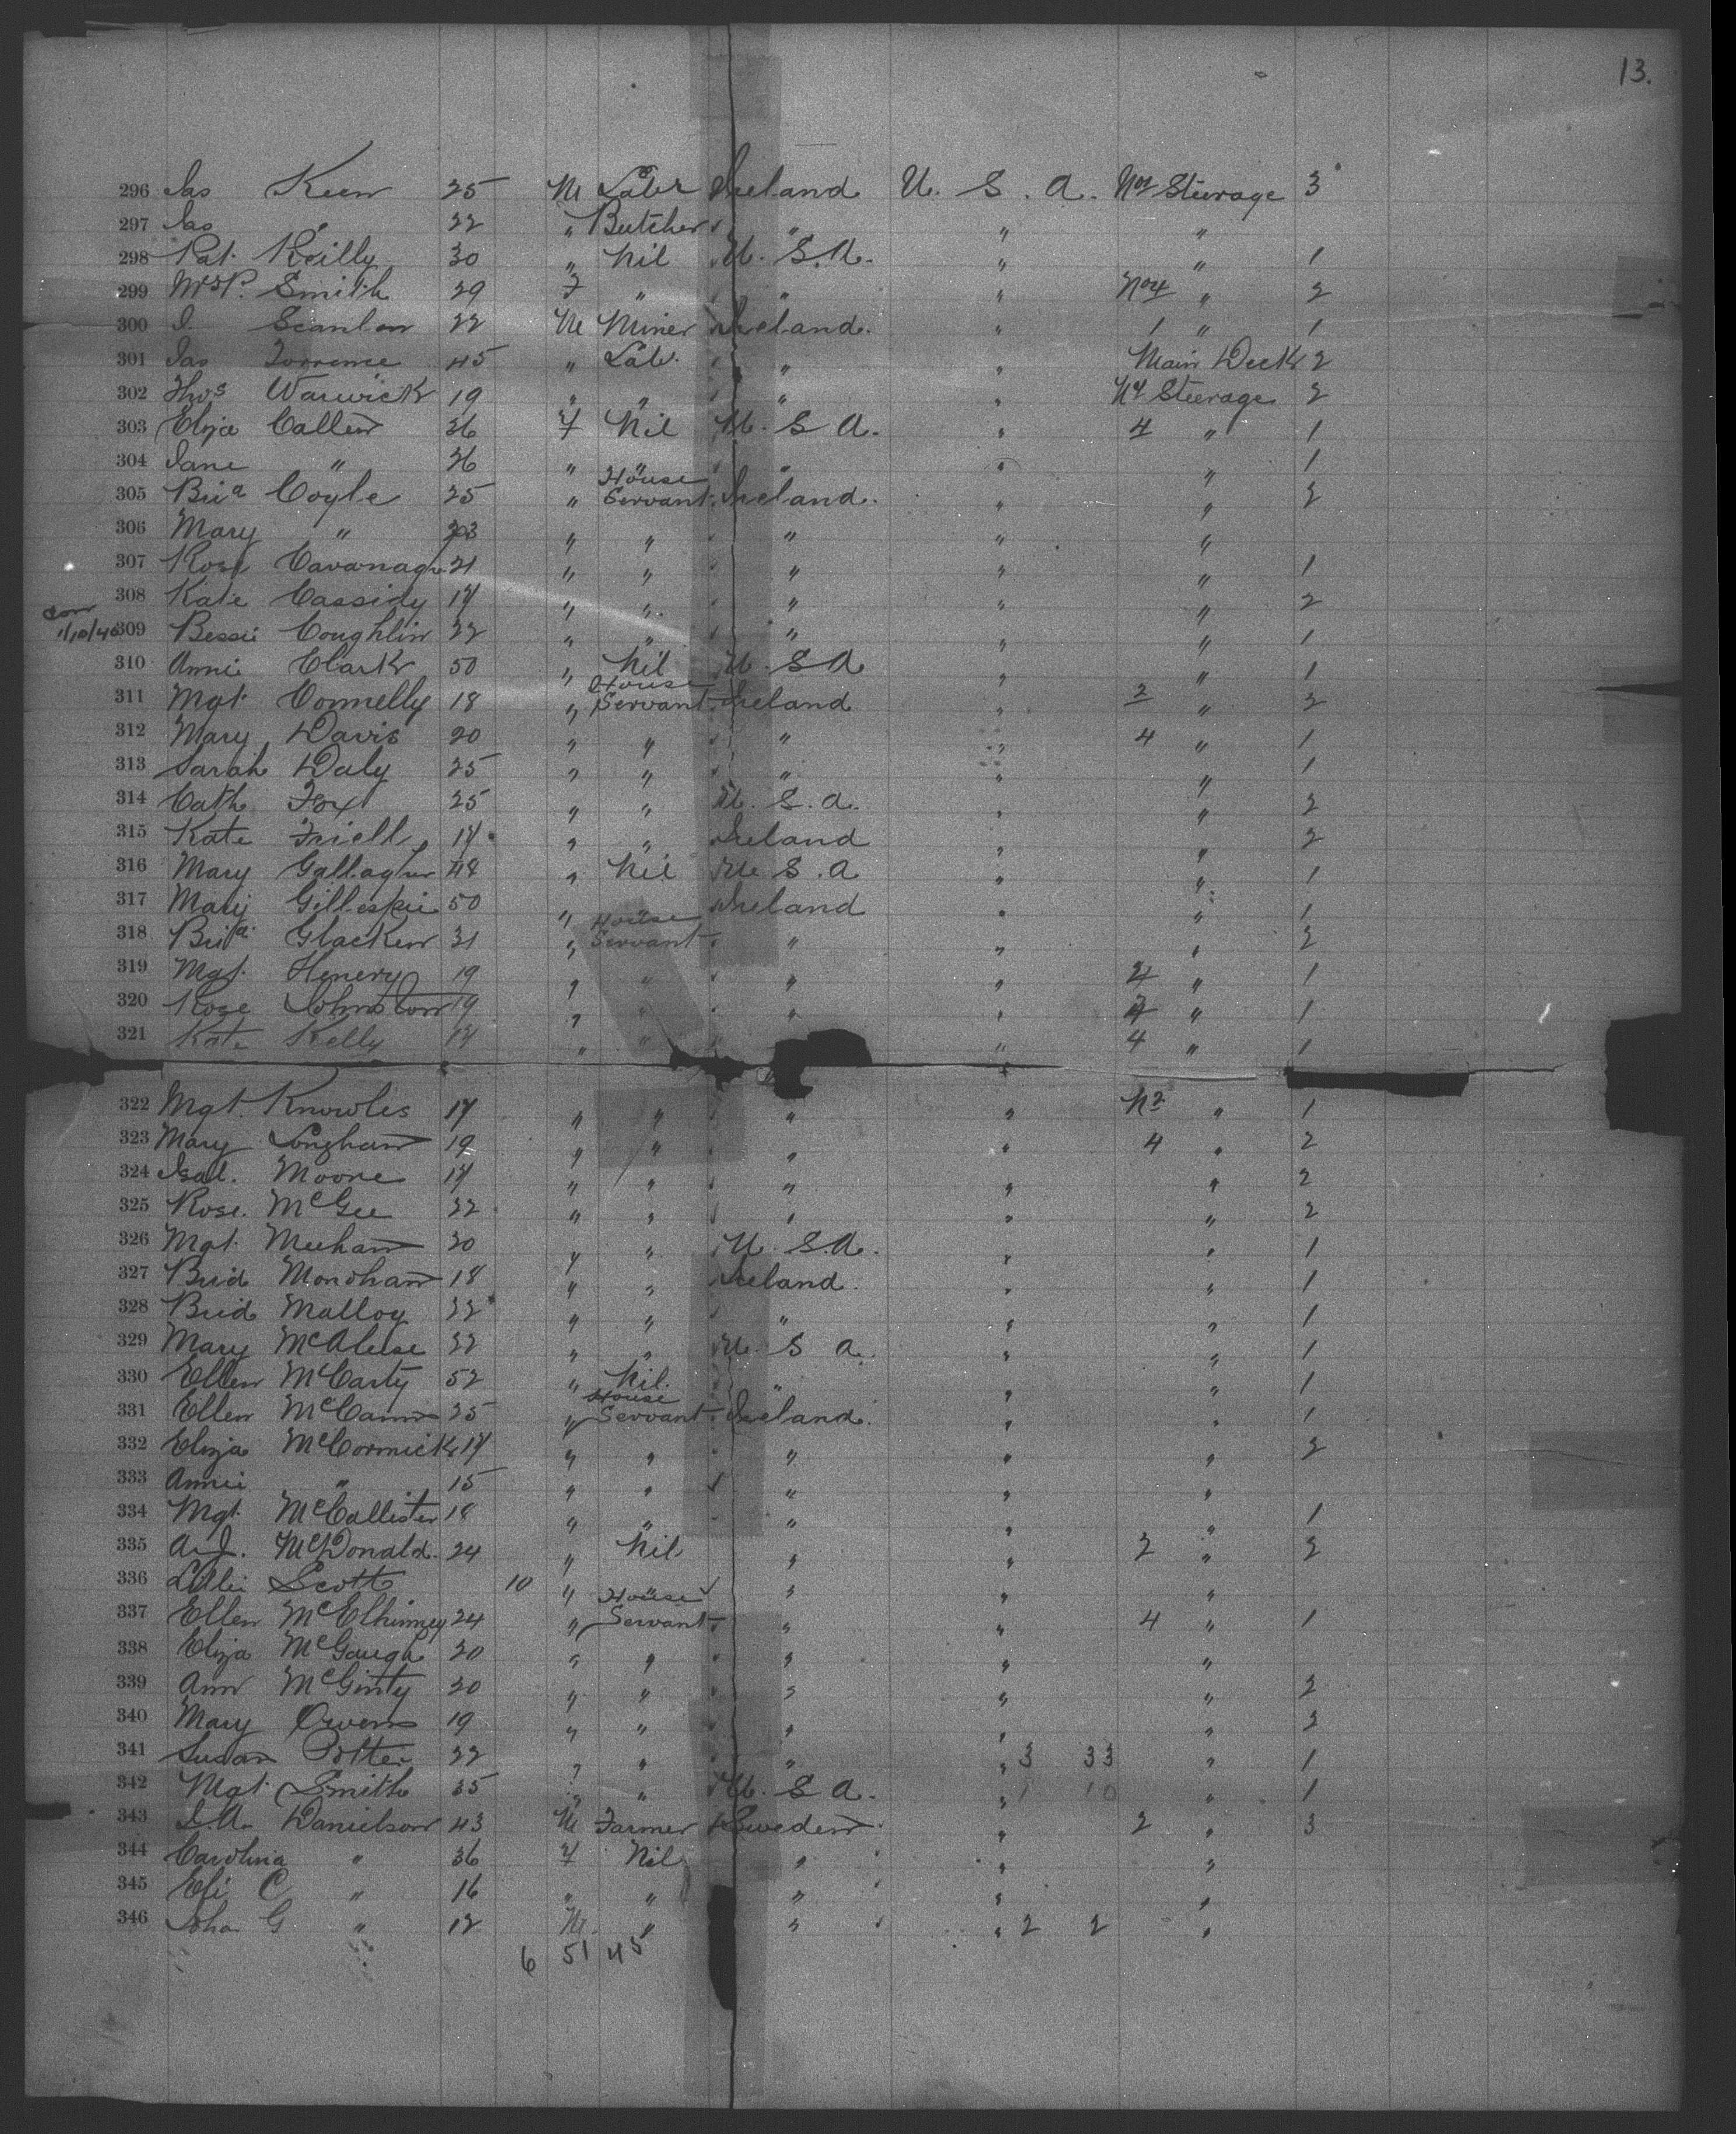 13.
296 Jas Keen 25 M Labr Ireland U. S. A. No 1 Steerage 3
297 Jas " 22 " Butcher " " " "
298 Pat. Reilly 30 " Nil U. S. A. " " 1
299 Mrs P. Smith 29 F " " " No 4 " 2
300 J. Scanlon 22 M Miner Ireland. " 1 " 1
301 Jas Torrence 45 " Lab. " " Main Deck 2
302 Thos Warwick 19 " " " " Steerage 2
303 Eliza Callen 36 F Nil U. S A. " 4 " 1
304 Jane " 26 " " " " " 1
305 Bria Coyle 25 " House Servant Ireland. " " 2
306 Mary " " " " " "
307 Rose Cavanagh 21 " " " " " 1
308 Kate Cassidy 17 " " " " " 2
1/10/40 309 Bessie Coughlin 22 " " " " " 1
310 Annie Clark 50 " Nil U. S A " " 1
311 Mgt Connelly 18 " House Servant Ireland " 2 " 2
312 Mary Davis 20 " " " " 4 " 1
313 Sarah Daly 25 " " " " " 1
314 Cath Fox 25 " " U. S. A. " " 2
315 Kate Friell 17 " " Ireland " " 2
316 Mary Gallagher 48 " Nil U. S. A " " 1
317 Mary Gillespie 50 " " Ireland " " 1
318 Bria Glacken 21 " House Servant " " " 2
319 Mgt. Henery 19 " " " " " 1
320 Rose Johnston 19 " " " " " 1
321 Kate Kelly 17 " " " 4 " 1
322 Mgt. Knowles 17 " " " " No 2 " 1
323 Mary Longhan 19 " " " " 4 " 2
324 Isab. Moore 17 " " " " " 2
325 Rose McGee 22 " " " " " 2
326 Mgt. Meehan 20 " " U. S. A. " " 1
327 Brid Monohan 18 " " Ireland. " " 1
328 Brid Malloy 22 " " " " " 1
329 Mary McAleese 22 " " U. S A. " " 1
330 Ellen McCarty 52 " Nil. " " " 1
331 Ellen McCann 25 " House Servant Ireland. " " 1
332 Eliza McCormick 17 " " " " " 2
333 Annie " 15 " " " " "
334 Mgt McCallister 18 " " " " " 1
335 A. J. McDonald. 24 " Nil " " 2 " 2
336 Lillie Scott 10 " " " " "
337 Ellen McElhinney 24 " House Servant " " 4 " 1
338 Eliza McGaugh 20 " " " " "
339 Ann McGinty 20 " " " " " 2
340 Mary Owens 19 " " " " " 2
341 Susan Potter 22 " " " " 3 33 " 1
342 Mgt Smith 35 " " U. S A. " 1 10 " 1
343 J. A. Danielson 43 M Farmer Sweden. " 2 " 3
344 Carolina " 36 F Nil " " "
345 Efi C " 16 " " " " "
346 Johan G " 12 M. " " " 2 2 "
6 51 45